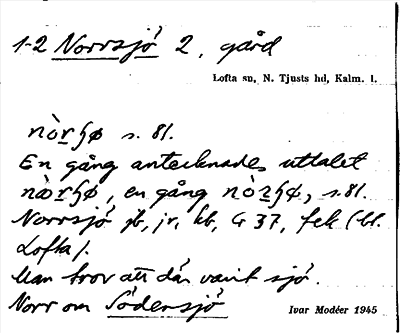 1-2 Norrsjö 2, gård
Lofta sn, N. Tjusts hd, Kalm. l.
nòrɧø s. 81.
En gång antecknades uttalet
næ̀rɧø, en gång nòrɧø, s. 81.
Norrsjö jb, jr, kb, G 37, fek (bl.
Lofta).
Man tror att där varit sjö.
Norr om Södersjö
Ivar Modéer 1945